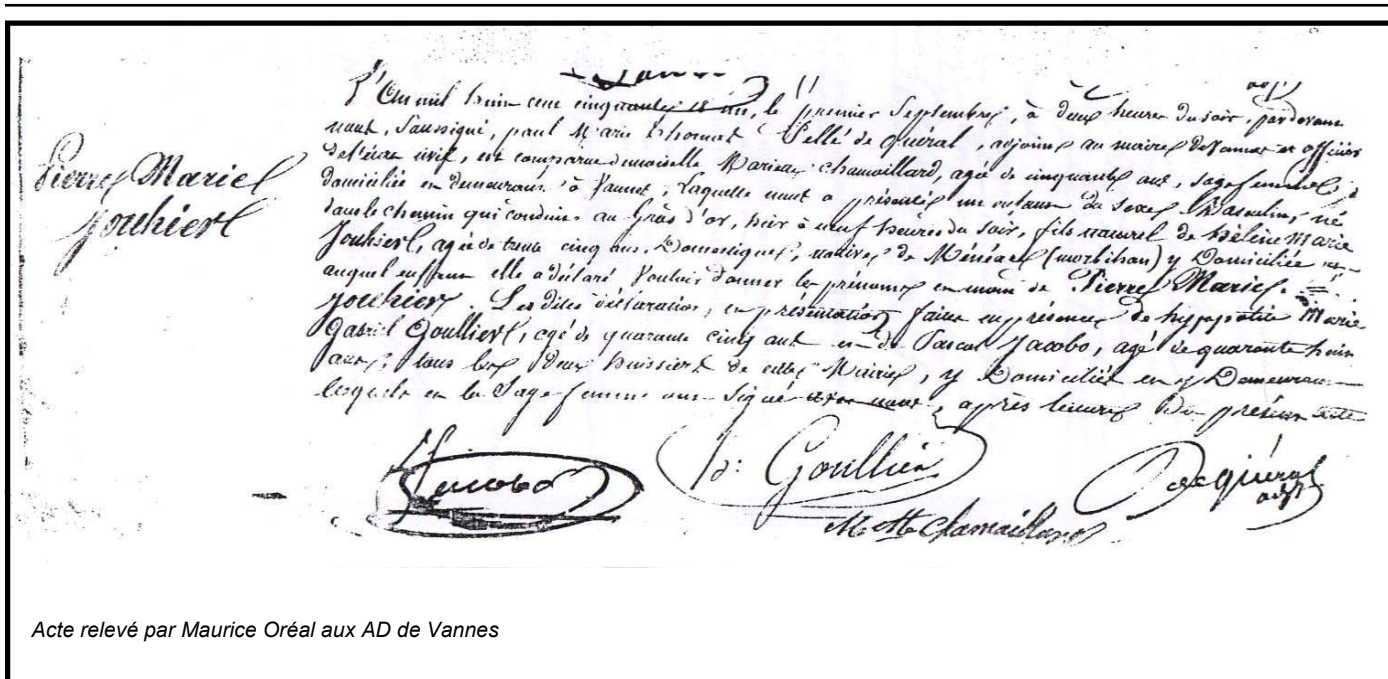 Pierre Marie
Jouhier
L'an mil huit cent cinquante un, le premier Septembre, à deux heures du soir, par devant
nous, Soussigné, paul Marie thomas Pellé de quéral, adjoint au maire de Vannes et officier
de l'état civil, est comparue demoiselle Marie chamaillard, agée de cinquante ans, sage femme,
domiciliée et demeurant à Vannes, Laquelle nous a présenté un enfant du sexe Masculin, né
dans le chemin qui conduit au Gras d'or, hier à neuf heures du soir, fils naturel de hélène marie
Jouhier, agée de trente cinq ans, Domestique, native de Ménéac (morbihan) y Domiciliée et
auquel enfant elle a déclaré Vouloir donner les prénoms et nom de Pierre Marie
Jouhier. Les dites déclaration et présentation faites en présence de hyppolite Marie
Gabriel Goullier, agé de quarante cinq ans et de Pascal Jacobo, agé de quarante huit
ans, tous les deux huissiers de cette Mairie, y Domiciliés et y Demeurant
lesquels et la Sage femme ont Signé avec nous, après lecture Du présent acte
Jacobo
h: Goullier
de quéral
adjt
M Chamaillard
Acte relevé par Maurice Oréal aux AD de Vannes